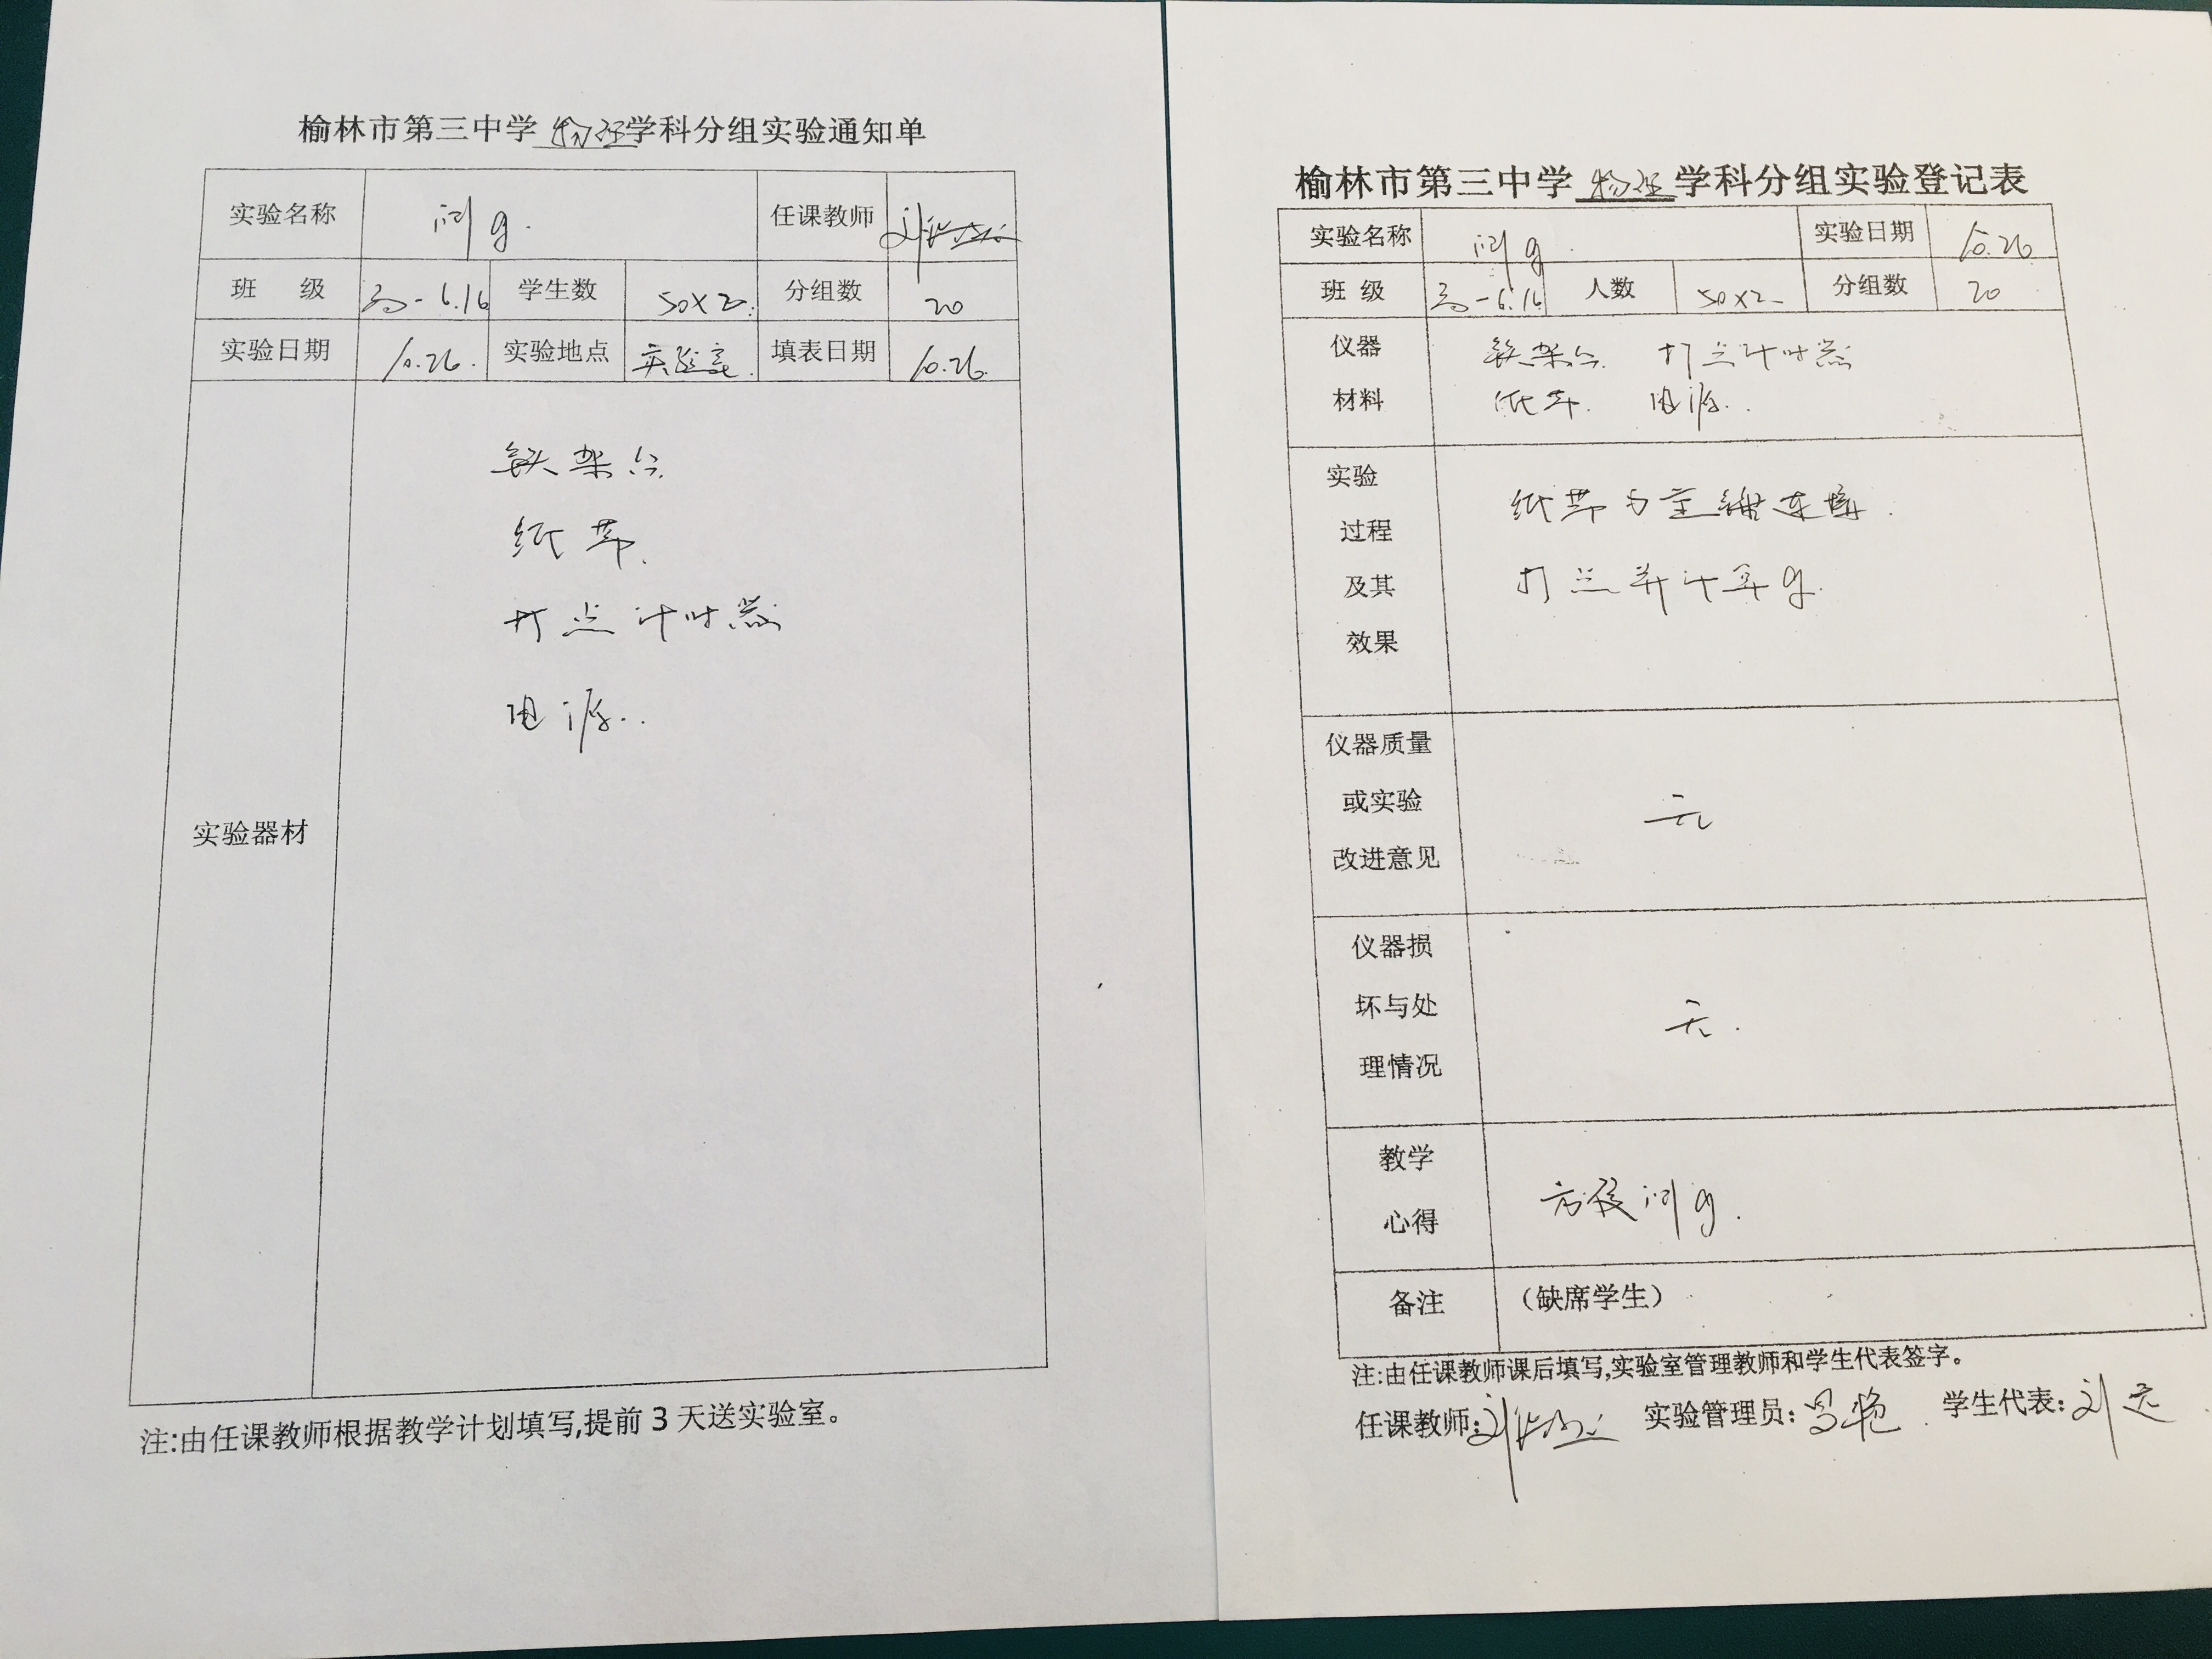 榆林市第三中学物理学科分组实验通知单
实验名称 测g. 任课教师
班 级 高一6.16 学生数 50×2 分组数 20
实验日期 10.26. 实验地点 实验室. 填表日期 10.26.
实验器材
铁架台.
纸带.
打点计时器
电源..
注:由任课教师根据教学计划填写,提前3天送实验室。
榆林市第三中学物理学科分组实验登记表
实验名称 测g. 实验日期 10.26
班 级 高一6.16 人数 50×2 分组数 20
仪器
材料
铁架台. 打点计时器
纸带. 电源..
实验
过程
及其
效果
纸带与重锤连接.
打点并计算g.
仪器质量
或实验
改进意见
无
仪器损
坏与处
理情况
无.
教学
心得
测g.
备注 (缺席学生)
注:由任课教师课后填写,实验室管理教师和学生代表签字。
任课教师: 实验管理员: 学生代表: